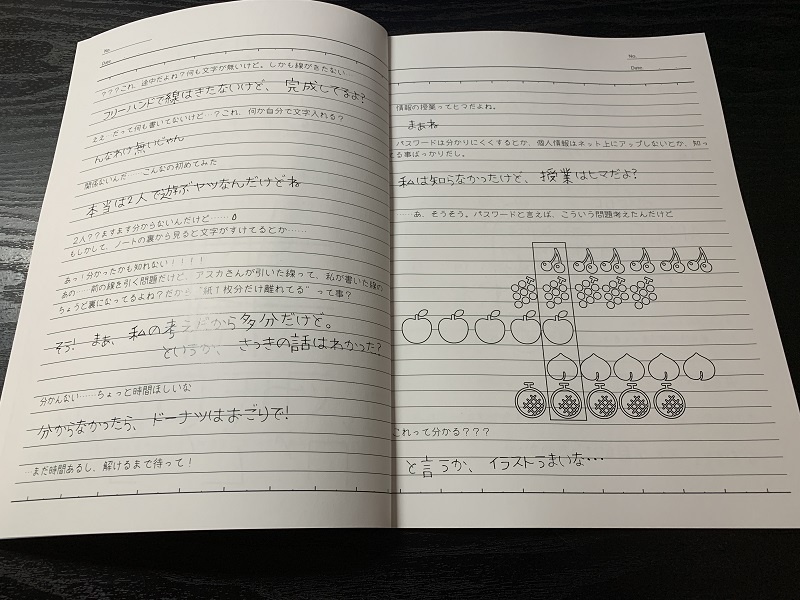 No.
Date
？？？これ、途中だよね？何も文字が無いけど。しかも線がきたない…
フリーハンドで線はきたないけど、完成してるよ？
ええ…だって何も書いてないけど…？これ、何か自分で文字入れる？
んなわけ無いじゃん
関係ないんだ……こんなの初めてみた
本当は2人で遊ぶヤツなんだけどね
2人？？ますます分からないんだけど……。
もしかして、ノートの裏から見ると文字がすけてるとか……
あっ！分ったかも知れない！！！！
あの……前の線を引く問題だけど、アスカさんが引いた線って、私が書いた線の
ちょうど裏になってるよね？だから“紙1枚分だけ離れてる”って事？
そう！まぁ、私の考えだから多分だけど。
というか、さっきの話はわかった？
分かんない……ちょっと時間ほしいな
分からなかったら、ドーナツはおごりで！
…まだ時間あるし、解けるまで待って！
No.
Date
情報の授業ってヒマだよね。
まぁね
パスワードは分かりにくくするとか、個人情報はネット上にアップしないとか、知っ
てる事ばっかりだし。
私は知らなかったけど、授業はヒマだよ？
……あ、そうそう。パスワードと言えば、こういう問題考えたんだけど
これって分かる？？？
と言うか、イラストうまいな…